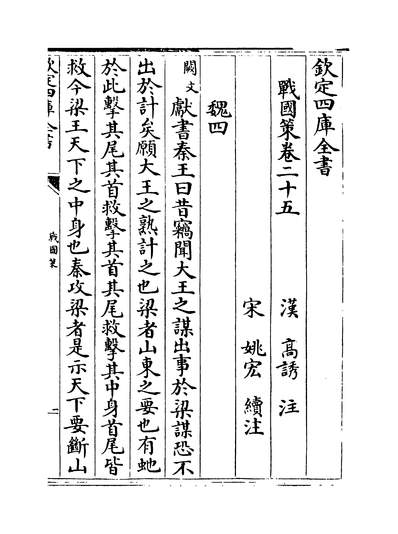 欽定四庫全書
戰國策卷二十五
漢 高誘 注
宋 姚宏 續注
魏四
闕文 獻書秦王曰昔竊聞大王之謀出事於梁謀恐不
出於計矣願大王之熟計之也梁者山東之要也有虵
於此擊其尾其首救擊其首其尾救擊其中身首尾皆
救今梁王天下之中身也秦攻梁者是示天下要斷山
欽定四庫全書
戰國策
一